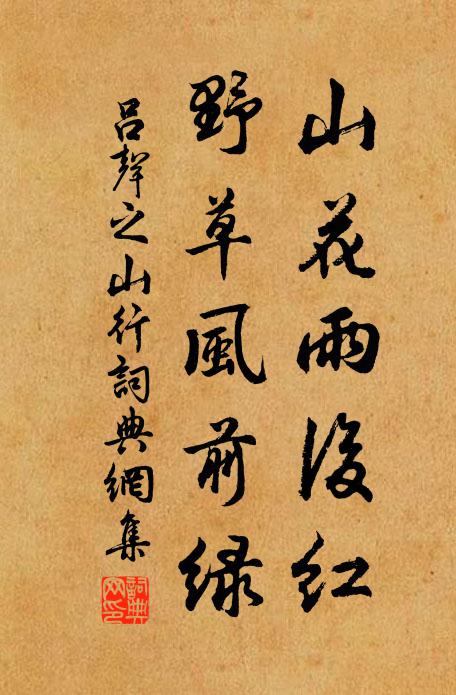 山花雨後紅
野草風前緑
吕聲之山行詞典網集
詞典
网印